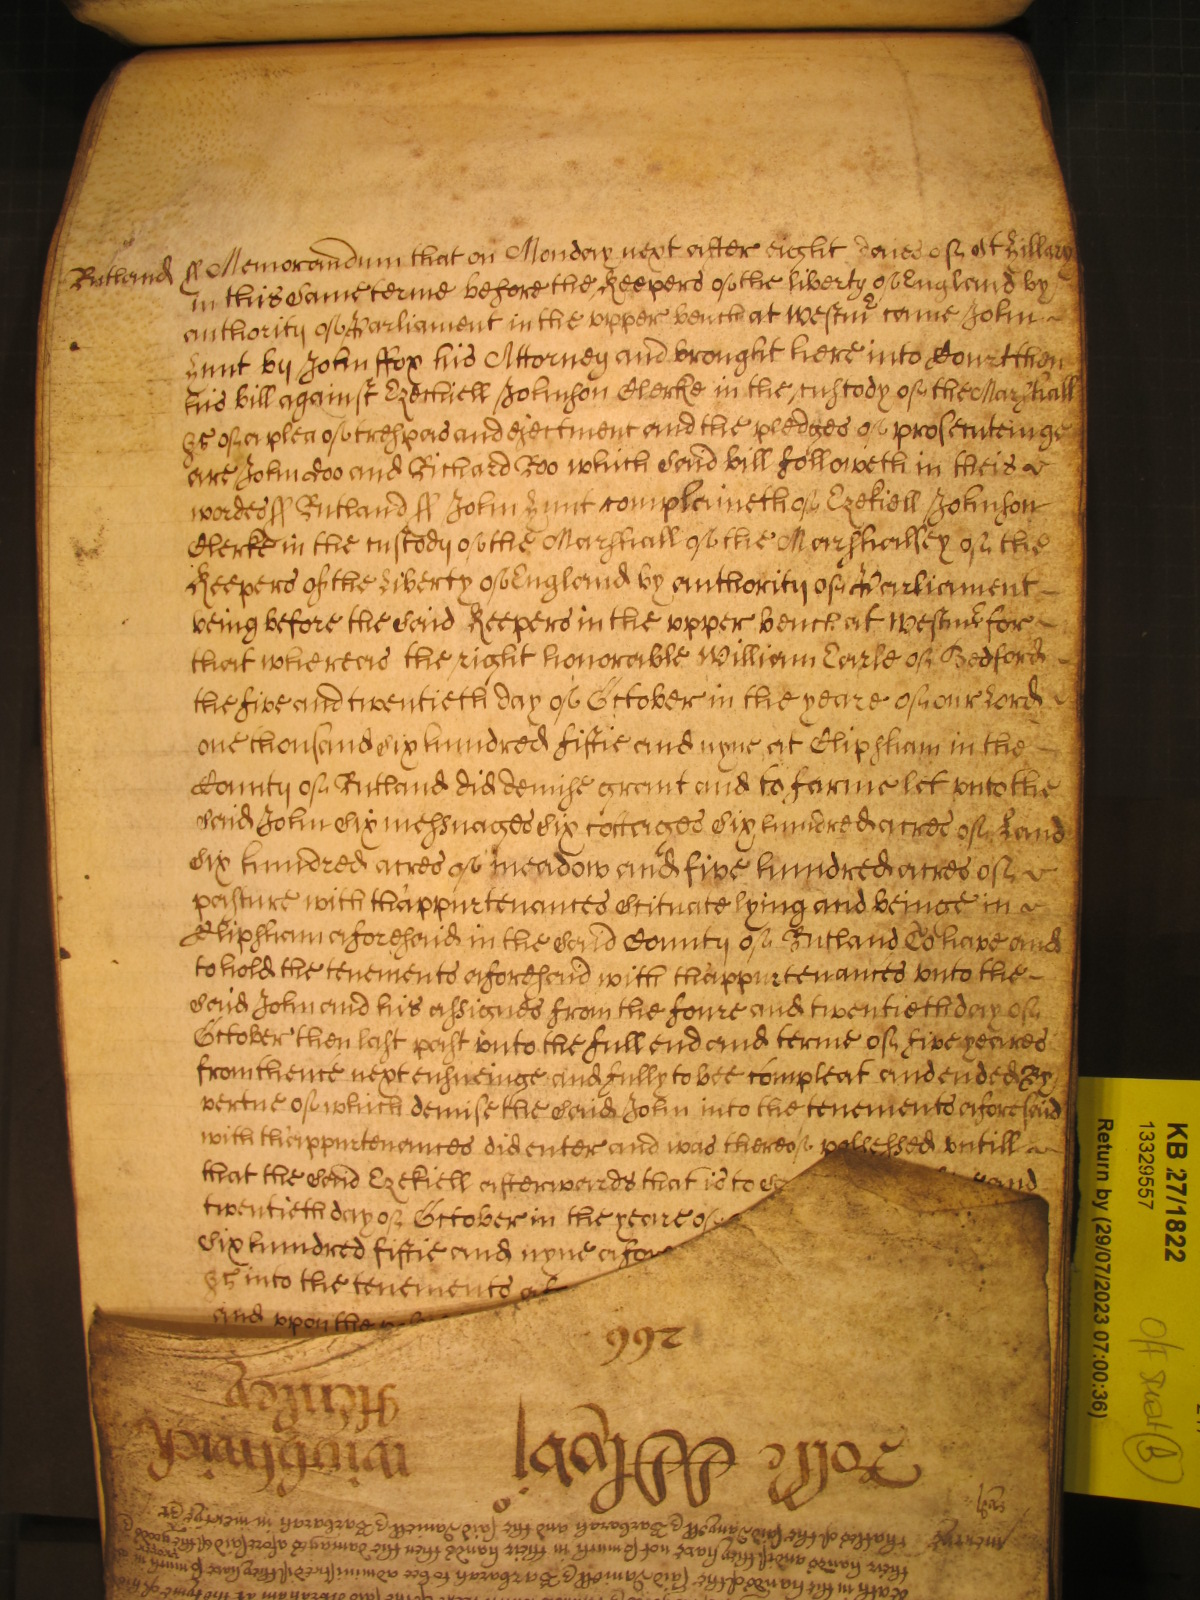 Rutland ss Memorandum that on Monday next after eight daies of St Hillary
in this same terme before the Keepers of the liberty of England by
authority of Parliament in the upper bench at Westmr came John
Hunt by John ffox his Attorney and brought here into Court then
his bill against Ezechiell Johnson Clerke in the custody of the Marshall
&c of a plea of trespas and ejectment and the pledges of prosecuteinge
are John Doo and Richard Roo which said bill followeth in theis
wordes ss Rutland ss John Hunt complaineth of Ezekiell Johnson
Clerke in the custody of the Marshall of the Marshallsey of the
Keepers of the liberty of England by authority of Parliament
being before the said Keepers in the upper bench at Westmr for
that whereas the right honorable William Earle of Bedford
the five and twentieth day of October in the yeare of our Lord
one thousand six hundred fiftie and nyne at Clipsham in the
County of Rutland did demise grant and to farme let unto the
said John six messuages six cottages six hundred acres of Land
six hundred acres of meadow and five hundred acres of
pasture with thappurtenances scituate lying and beinge in
Clipsham aforesaid in the said County of Rutland To have and
to hold the tenements aforesaid with thappurtenances unto the
said John and his assignes from the foure and twentieth day of
October then last past unto the full end and terme of five yeares
from thence next ensueinge and fully to bee compleat and ended By
vertue of which demise the said John into the tenements aforesaid
with thappurtenances did enter and was thereof possessed untill
that the said Ezekiell afterwards that is to and
twentieth day of October in the yeare of
six hundred fiftie and nyne afore
&c into the tenements
and upon the
266
Henley
wightwick
Rolle
hands of the said Daniell & Barbarah to bee administred if they have so much in
their hands and if they have not so much in their hands then the damages aforesaid of the
of the said Danyell & Barbarah and the said Daniell & Barbarah in mercye &c
KB 27/1822
13329557
Return by (29/07/2023 07:00:36)